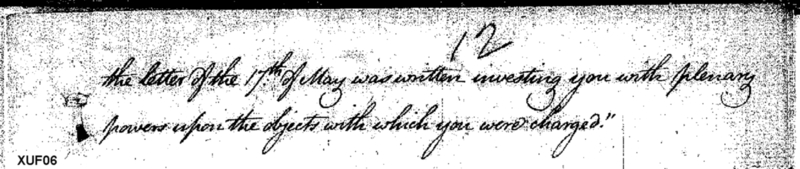 12
the letter of the 17th. of May was written investing you with plenary
powers upon the objects with which you were charged."
XUF06